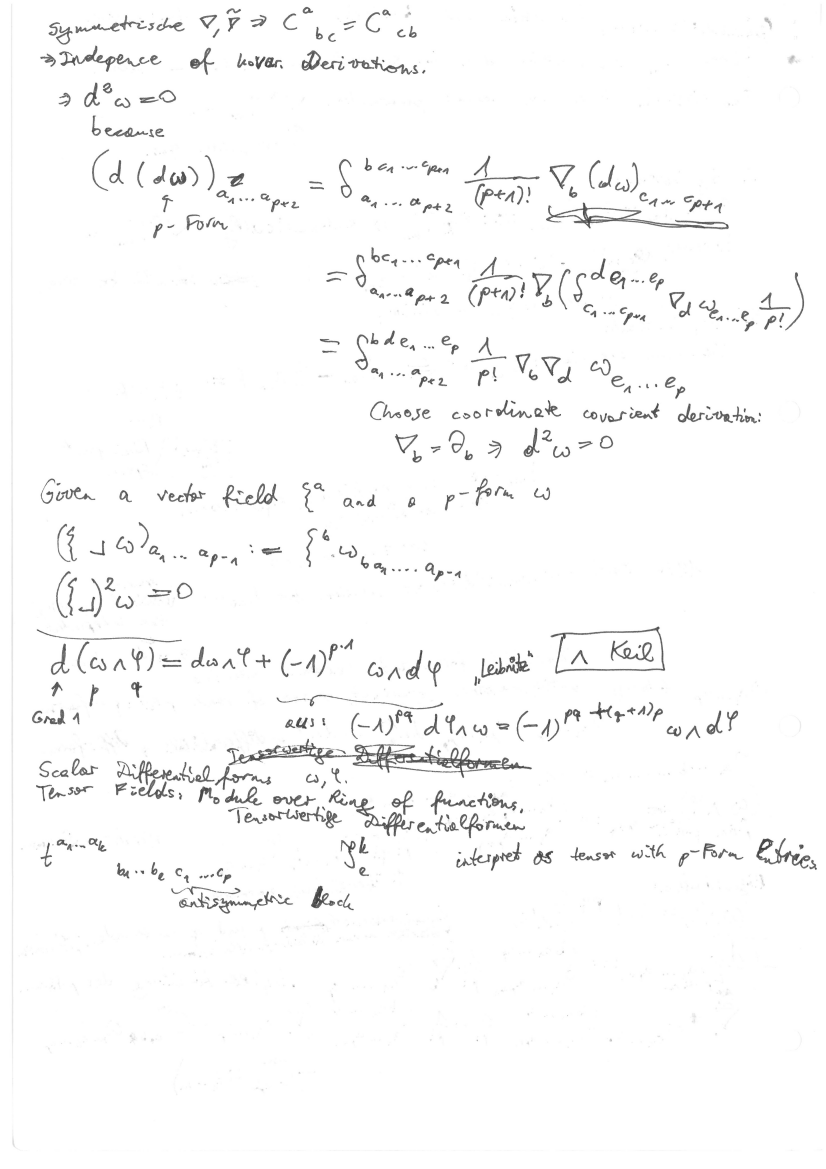 Symmetrische ∇, ∇̃ ⇒ C^a_{bc} = C^a_{cb}
⇒ Indepence of kovar. Derivations.
⇒ d²ω = 0
because
(d (dω))_{a₁...a_{p+2}} = δ^{b c₁...c_{p+1}}_{a₁...a_{p+2}} 1/(p+1)! ∇_b (dω)_{c₁...c_{p+1}}
↑
p-Form
= δ^{b c₁...c_{p+1}}_{a₁...a_{p+2}} 1/(p+1)! ∇_b (δ^{d e₁...e_p}_{c₁...c_{p+1}} ∇_d ω_{e₁...e_p} 1/p!)
= δ^{b d e₁...e_p}_{a₁...a_{p+2}} 1/p! ∇_b ∇_d ω_{e₁...e_p}
Choose coordinate covarient derivation:
∇_b = ∂_b ⇒ d²ω = 0
Given a vector field ξ^a and a p-form ω
(ξ ⌟ ω)_{a₁...a_{p-1}} := ξ^b ω_{b a₁....a_{p-1}}
(ξ⌟)² ω = 0
d (ω ∧ φ) = dω ∧ φ + (-1)^{p·1} ω ∧ dφ „Leibnitz“ ∧ Keil
↑ p q
Grad 1 aus: (-1)^{pq} dφ ∧ ω = (-1)^{pq + (q+1)p} ω ∧ dφ
Tensorwertige Differentialformen
Scalar Differential forms ω, φ.
Tensor Fields: Module over Ring of functions.
Tensorwertige Differentialformen
t^{a₁...a_k}_{b₁...b_l c₁...c_p} k l interpret as tensor with p-Form Entries
antisymmetric block